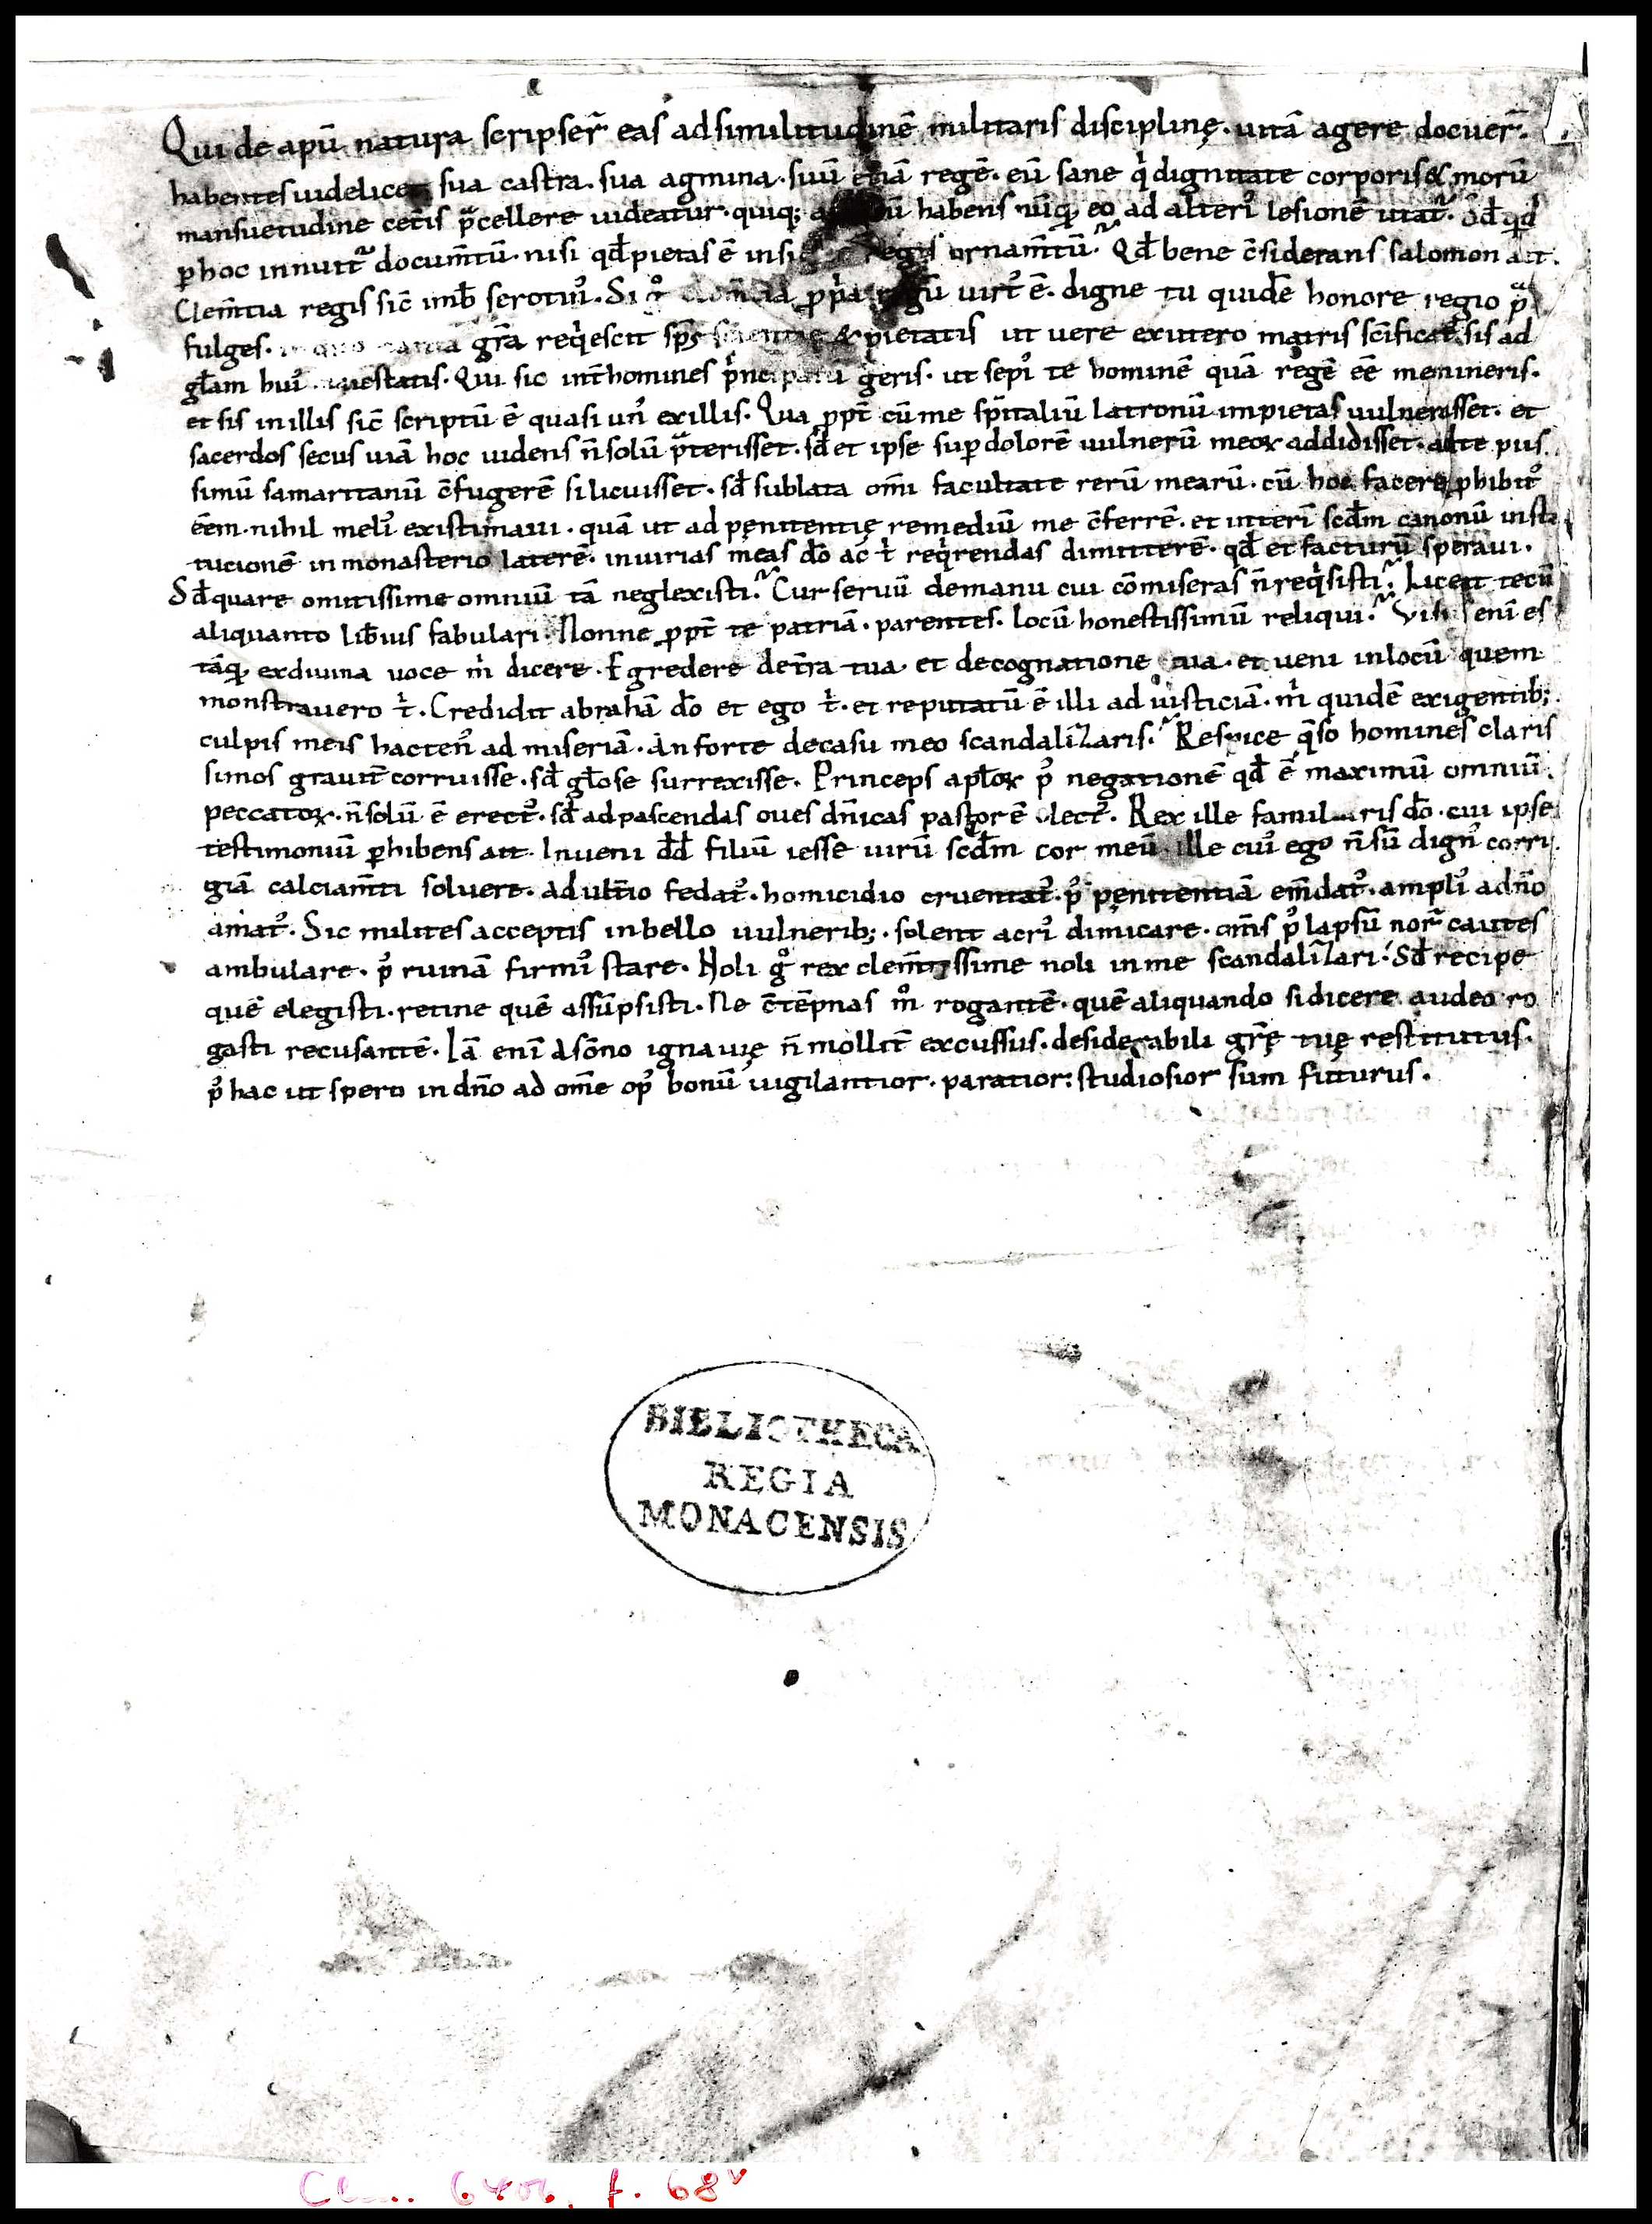 Qui de apū natura scripser̄ eas ad similitudinē militaris disciplinę. uitā agere docuer̄.
habentes uidelicet sua castra. sua agmina. suū etiā regē. eū sane q̇ dignitate corporis & morū
mansuetudine cetis p̄cellere uideatur. quiq; habens nūq̨ eo ad alteri᾽ lesionē utat᷑. Qd̄ qid
p hoc innuit᷑ docum̄tū. nisi qd̄ pietas ē regis ornam̄tū? Qd̄ bene c̄siderans salomon ait.
Clem̄tia regis sic̄ imb̄ serotin᾽. Si g̊ clem̄tia ppa regū uirt᾽ ē. digne tu quidē honore regio p̄
fulges. gr̄a reqescit sp̄s scientię & pietatis ut uere ex utero matris sc̄ificat᾽ sis ad
gl̄am hui᾽ maiestatis. Qui sic int̄ homines ṗncipatū geris. ut sepi᾽ te hominē quā regē ēē memineris.
et sis in illis sic̄ scriptū ē quasi un᾽ ex illis. Qua ppt̄ cū me sp̄italiū latronū impietas uulnerasset. et
sacerdos secus uiā hoc uidens n̄ solū p̄terisset. sd̄ et ipse sup dolorē uulnerū meoꝝ addidisset. ad te piis
simū samaritanū c̄fugerē si licuisset. sd̄ sublata om̄i facultate rerū mearū. cū hoc facere phibit᾽
ēem. nihil meli᾽ existimaui. quā ut ad penitentię remediū me c̄ferrē. et interī scd̄m canonū insti
tucionē in monasterio laterē. iniurias meas do ac t̄ reqrendas dimitterē. qd̄ et facturū speraui.
Sd̄ quare o mitissime omniū tā neglexisti? Cur seruū de manu cui cōmiseras n̄ reqsisti? Liceat tecū
aliquanto lib̄ius fabulari. Nonne ppt̄ te patriā. parentes. locū honestissimū reliqui? Visus enī es
tāq̨ ex diuina uoce ṁ dicere. Egredere de tr̄a tua. et de cognatione tua. et ueni in locū quem
monstrauero t̄. Credidit abrahā do et ego t̄. et reputatū ē illi ad iusticiā. ṁ quidē exigentib;
culpis meis hacten᾽ ad miseriā. An forte de casu meo scandalizaris? Respice q̄so homines claris
simos grauit̄ corruisse. sd̄ gl̄ose surrexisse. Princeps apl̄oꝝ p᾽ negationē qd̄ ē maximū omniū
peccatoꝝ. n̄ solū ē erect᾽. sd̄ ad pascendas oues dn̄icas pastor ē elect᾽. Rex ille familiaris do. cui ipse
testimoniū phibens ait. Inueni dd̄ filiū iesse uirū scd̄m cor meū. ille cui᾽ ego n̄ sū dign᾽ corri
giā calciam̄ti soluere. adult̄io fedat᾽. homicidio cruentat᾽. p᾽ penitentiā em̄dat᾽. ampli᾽ a dn̄o
amat᾽. Sic milites acceptis in bello uulnerib;. solent acri᾽ dimicare. om̄s p᾽ lapsū nor᷑ cautes
ambulare. p᾽ ruinā firmi᾽ stare. Noli g̊ rex clem̄tissime noli in me scandalizari. Sd̄ recipe
quē elegisti. retine quē assūpsisti. Ne c̄tēpnas m̊ rogantē. quē aliquando si dicere audeo ro
gasti recusantē. Iā enī a sōno ignauię n̄ mollit̄ excussus. desiderabili gr̄ę tuę restitutus.
p᾽ hac ut spero in dn̄o ad om̄e op᾽ bonū uigilantior. paratior. studiosior sum futurus.
BIBLIOTHECA
REGIA
MONACENSIS
Clm. 6406, f. 68v